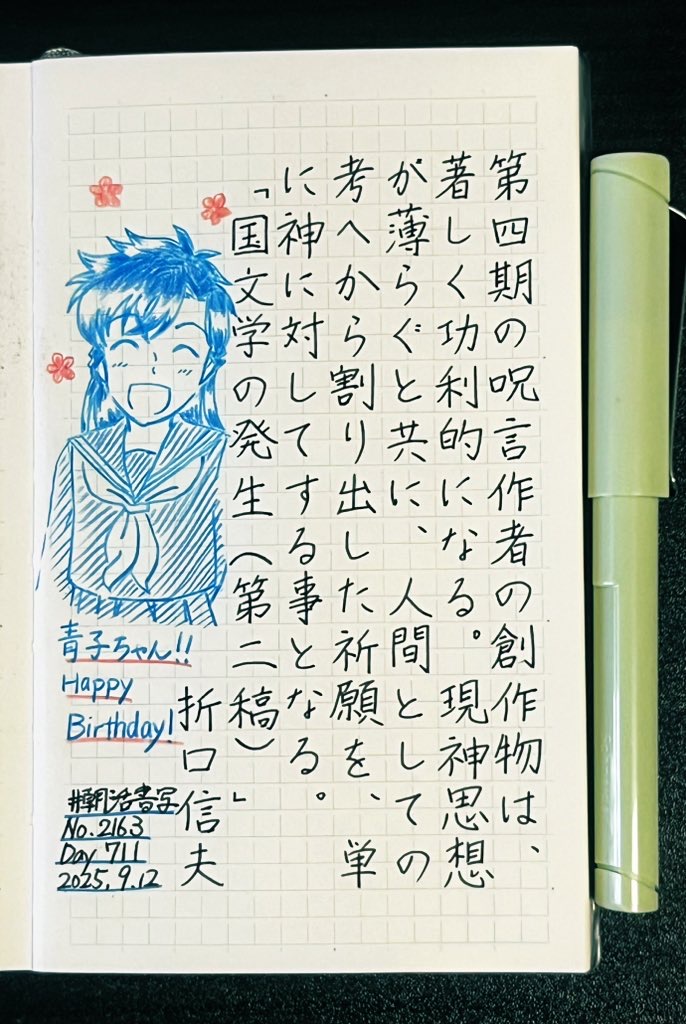 第四期の呪言作者の創作物は、
著しく功利的になる。現神思想
が薄らぐと共に、人間としての
考へから割り出した祈願を、単
に神に対してする事となる。
「国文学の発生（第二稿）」
折口信夫
青子ちゃん!!
Happy
Birthday!
#朝活書写
No.2163
Day 711
2025.9.12